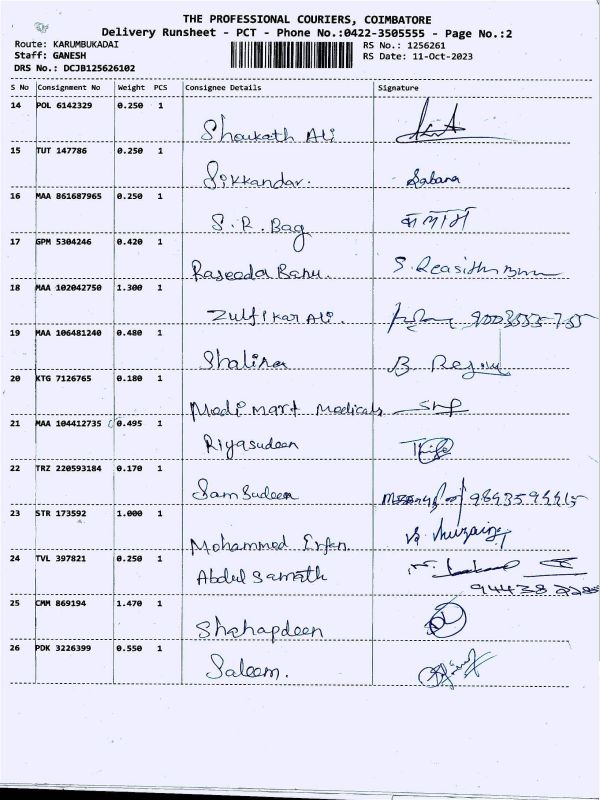 THE PROFESSIONAL COURIERS, COIMBATORE
Delivery Runsheet - PCT - Phone No.:0422-3505555 - Page No.:2
Route: KARUMBUKADAI RS No.: 1256261
Staff: GANESH RS Date: 11-Oct-2023
DRS No.: DCJB125626102
S No Consignment No Weight PCS Consignee Details Signature
14 POL 6142329 0.250 1
Shoukath Ali
15 TUT 147786 0.250 1
Sikkandar. Sabana
16 MAA 861687965 0.250 1
S.R. Bag
17 GPM 5304246 0.420 1
Raseeda Banu.
18 MAA 102042750 1.300 1
Zulfikar Ali.
19 MAA 106481240 0.480 1
Shalina
20 KTG 7126765 0.180 1
Medi mart medicals
21 MAA 104412735 0.495 1
Riyasudeen
22 TRZ 220593184 0.170 1
Samsudeen
23 STR 173592 1.000 1
Mohammed Erfan
24 TVL 397821 0.250 1
Abdul Samath
25 CMM 869194 1.470 1
Shahapdeen
26 PDK 3226399 0.550 1
Saleem.